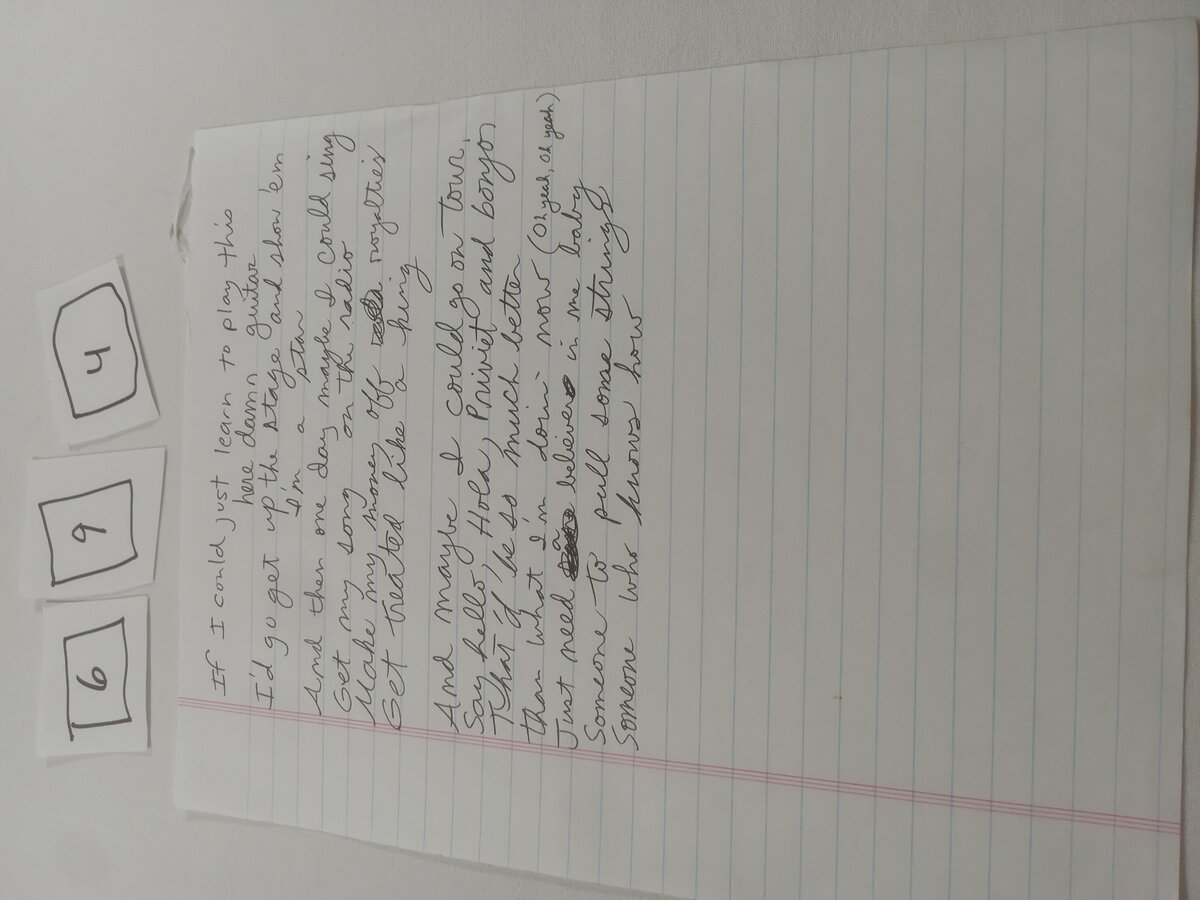 6 9 4
If I could just learn to play this
here damn guitar
I'd go get up the stage and show 'em
I'm a star
And then one day maybe I could sing
Get my song on the radio
Make my money off royalties
Get treated like a king
And maybe I could go on tour,
Say hello, Hola, Priviet and bonjor
That'd be so much better
than what I'm doin' now (Oh yeah, Oh yeah)
Just need a believer in me baby
Someone to pull some strings
Someone who knows how